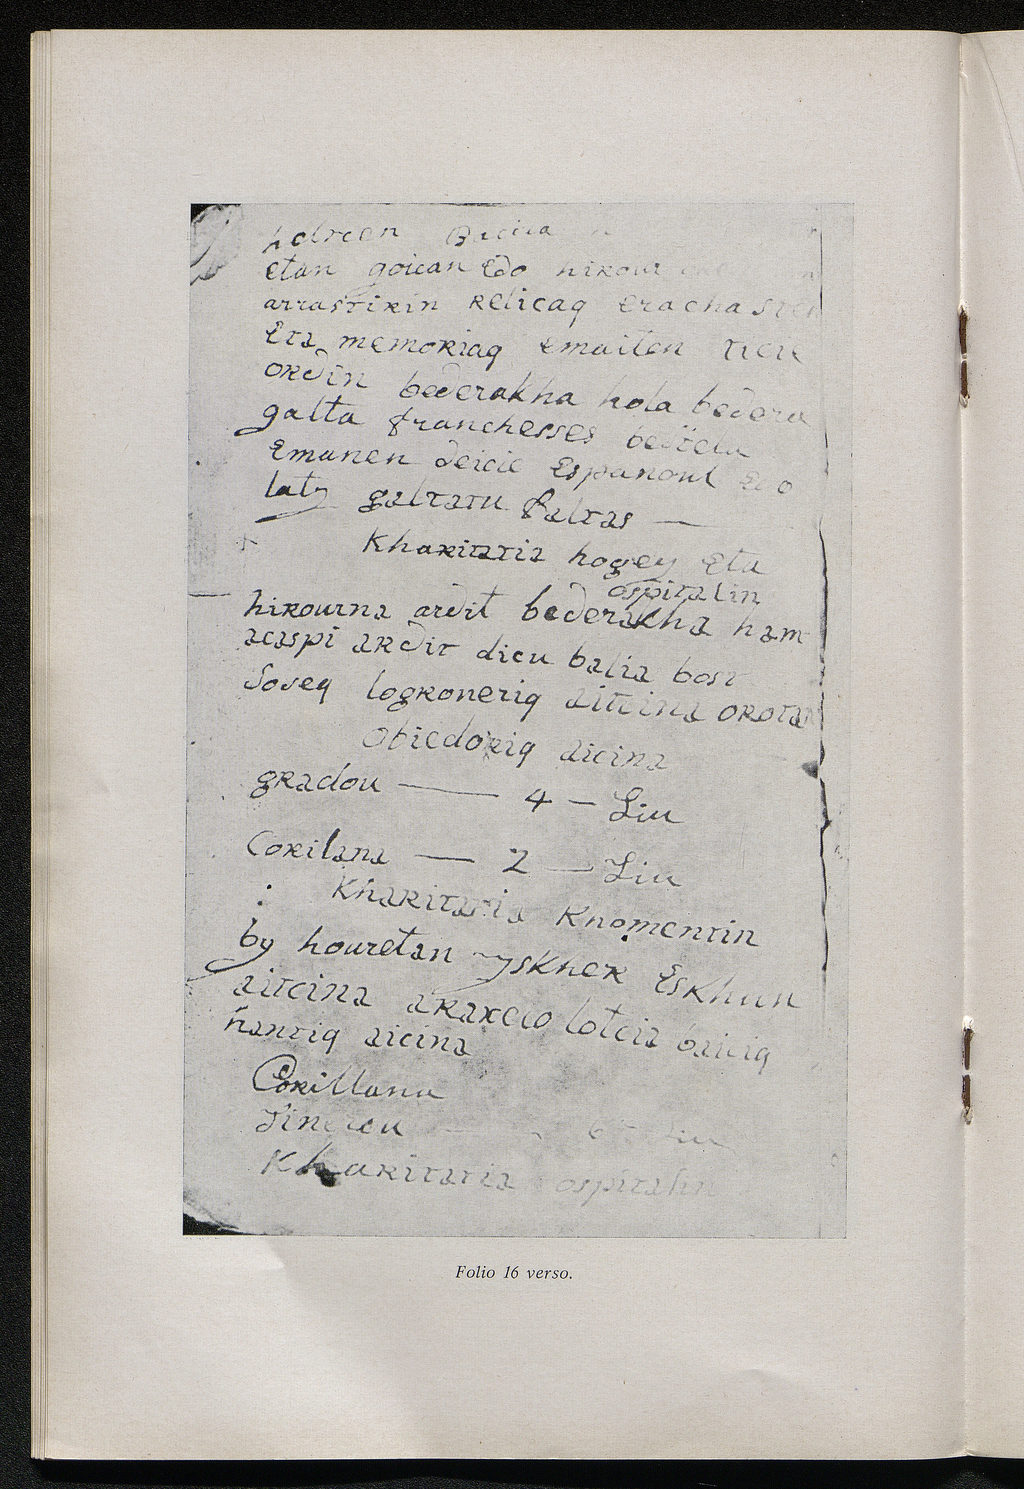 etan goican Edo hirour
arrastirin Relicaq erachasten
Eta memoriaq emaiten
ordin bederakha hola bedera
galta franchesses
Emanen deicie Espanoul Edo
laty galtatu faltas —
Kharitatia hogey Eta
ospitalin
hirourna ardit bederakha ham
acaspi ardit dicu balia bost
Soseq logroneriq aitcina
obiedoriq aicina
gradou — 4 — Liu
Corilana — 2 — Liu
Kharitatia Knomentin
by houretan yskher Eskhun
aitcina araxeco lotcia
hantiq aicina
Corillana
Kharitatia ospitalin
Folio 16 verso.